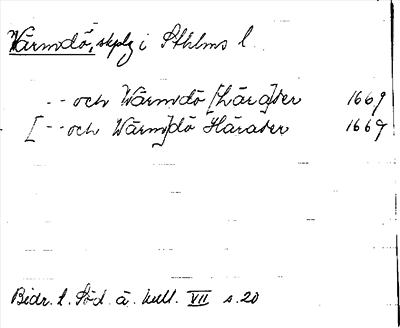 Värmdö, skplg i Sthlms l.
- - och Wärmdö [hära]der 1669
[- - och Wärm]dö Härader 1669
Bidr. t. Söd. ä. kult. VII s. 20